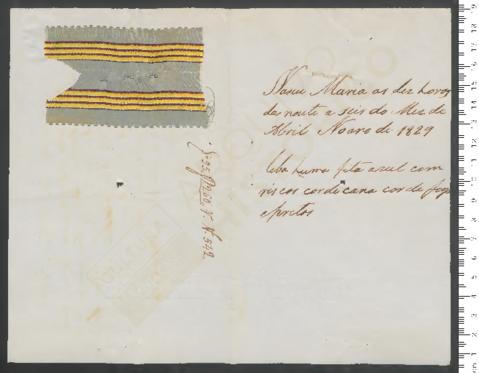 Nasceu Maria as dez horas
da noute a seis do Mez de
Abril No anno de 1829
Leva huma fita azul com
riscos cor de cana cor de fogo
e pretos
N. 542